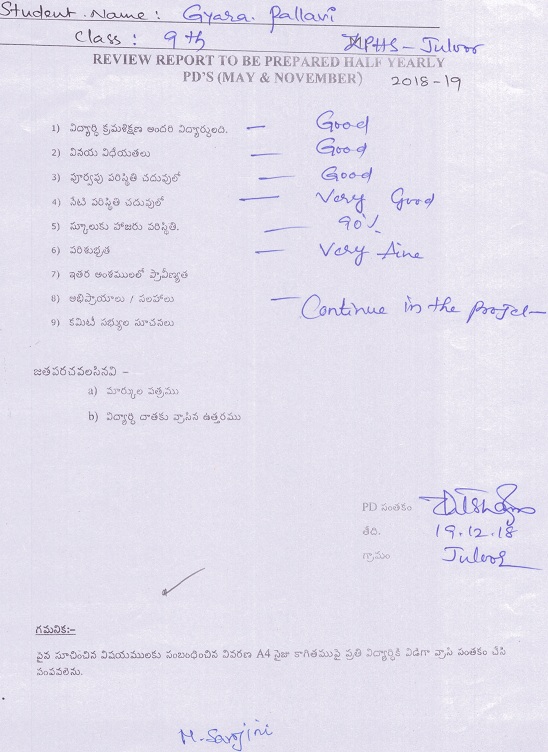 Student Name : Gyara. Pallavi
Class : 9th ZPHS - Juloor
REVIEW REPORT TO BE PREPARED HALF YEARLY
PD'S (MAY & NOVEMBER) 2018-19
1) విద్యార్థి క్రమశిక్షణ అందరి విద్యార్థులది. — Good
2) వినయ విధేయతలు — Good
3) పూర్వపు పరిస్థితి చదువులో — Good
4) నేటి పరిస్థితి చదువులో — Very Good
5) స్కూలుకు హాజరు పరిస్థితి. — 90%
6) పరిశుభ్రత — Very fine
7) ఇతర అంశములలో ప్రావీణ్యత
8) అభిప్రాయాలు / సలహాలు — Continue in the
9) కమిటీ సభ్యుల సూచనలు
జతపరచవలసినవి –
a) మార్కుల పత్రము
b) విద్యార్థి దాతకు వ్రాసిన ఉత్తరము
PD సంతకం
తేది. 19.12.18
గ్రామం Juloor
గమనిక:-
పైన సూచించిన విషయములకు సంబంధించిన వివరణ A4 సైజు కాగితముపై ప్రతి విద్యార్థికి విడిగా వ్రాసి సంతకం చేసి
పంపవలెను.
M. Sarojini